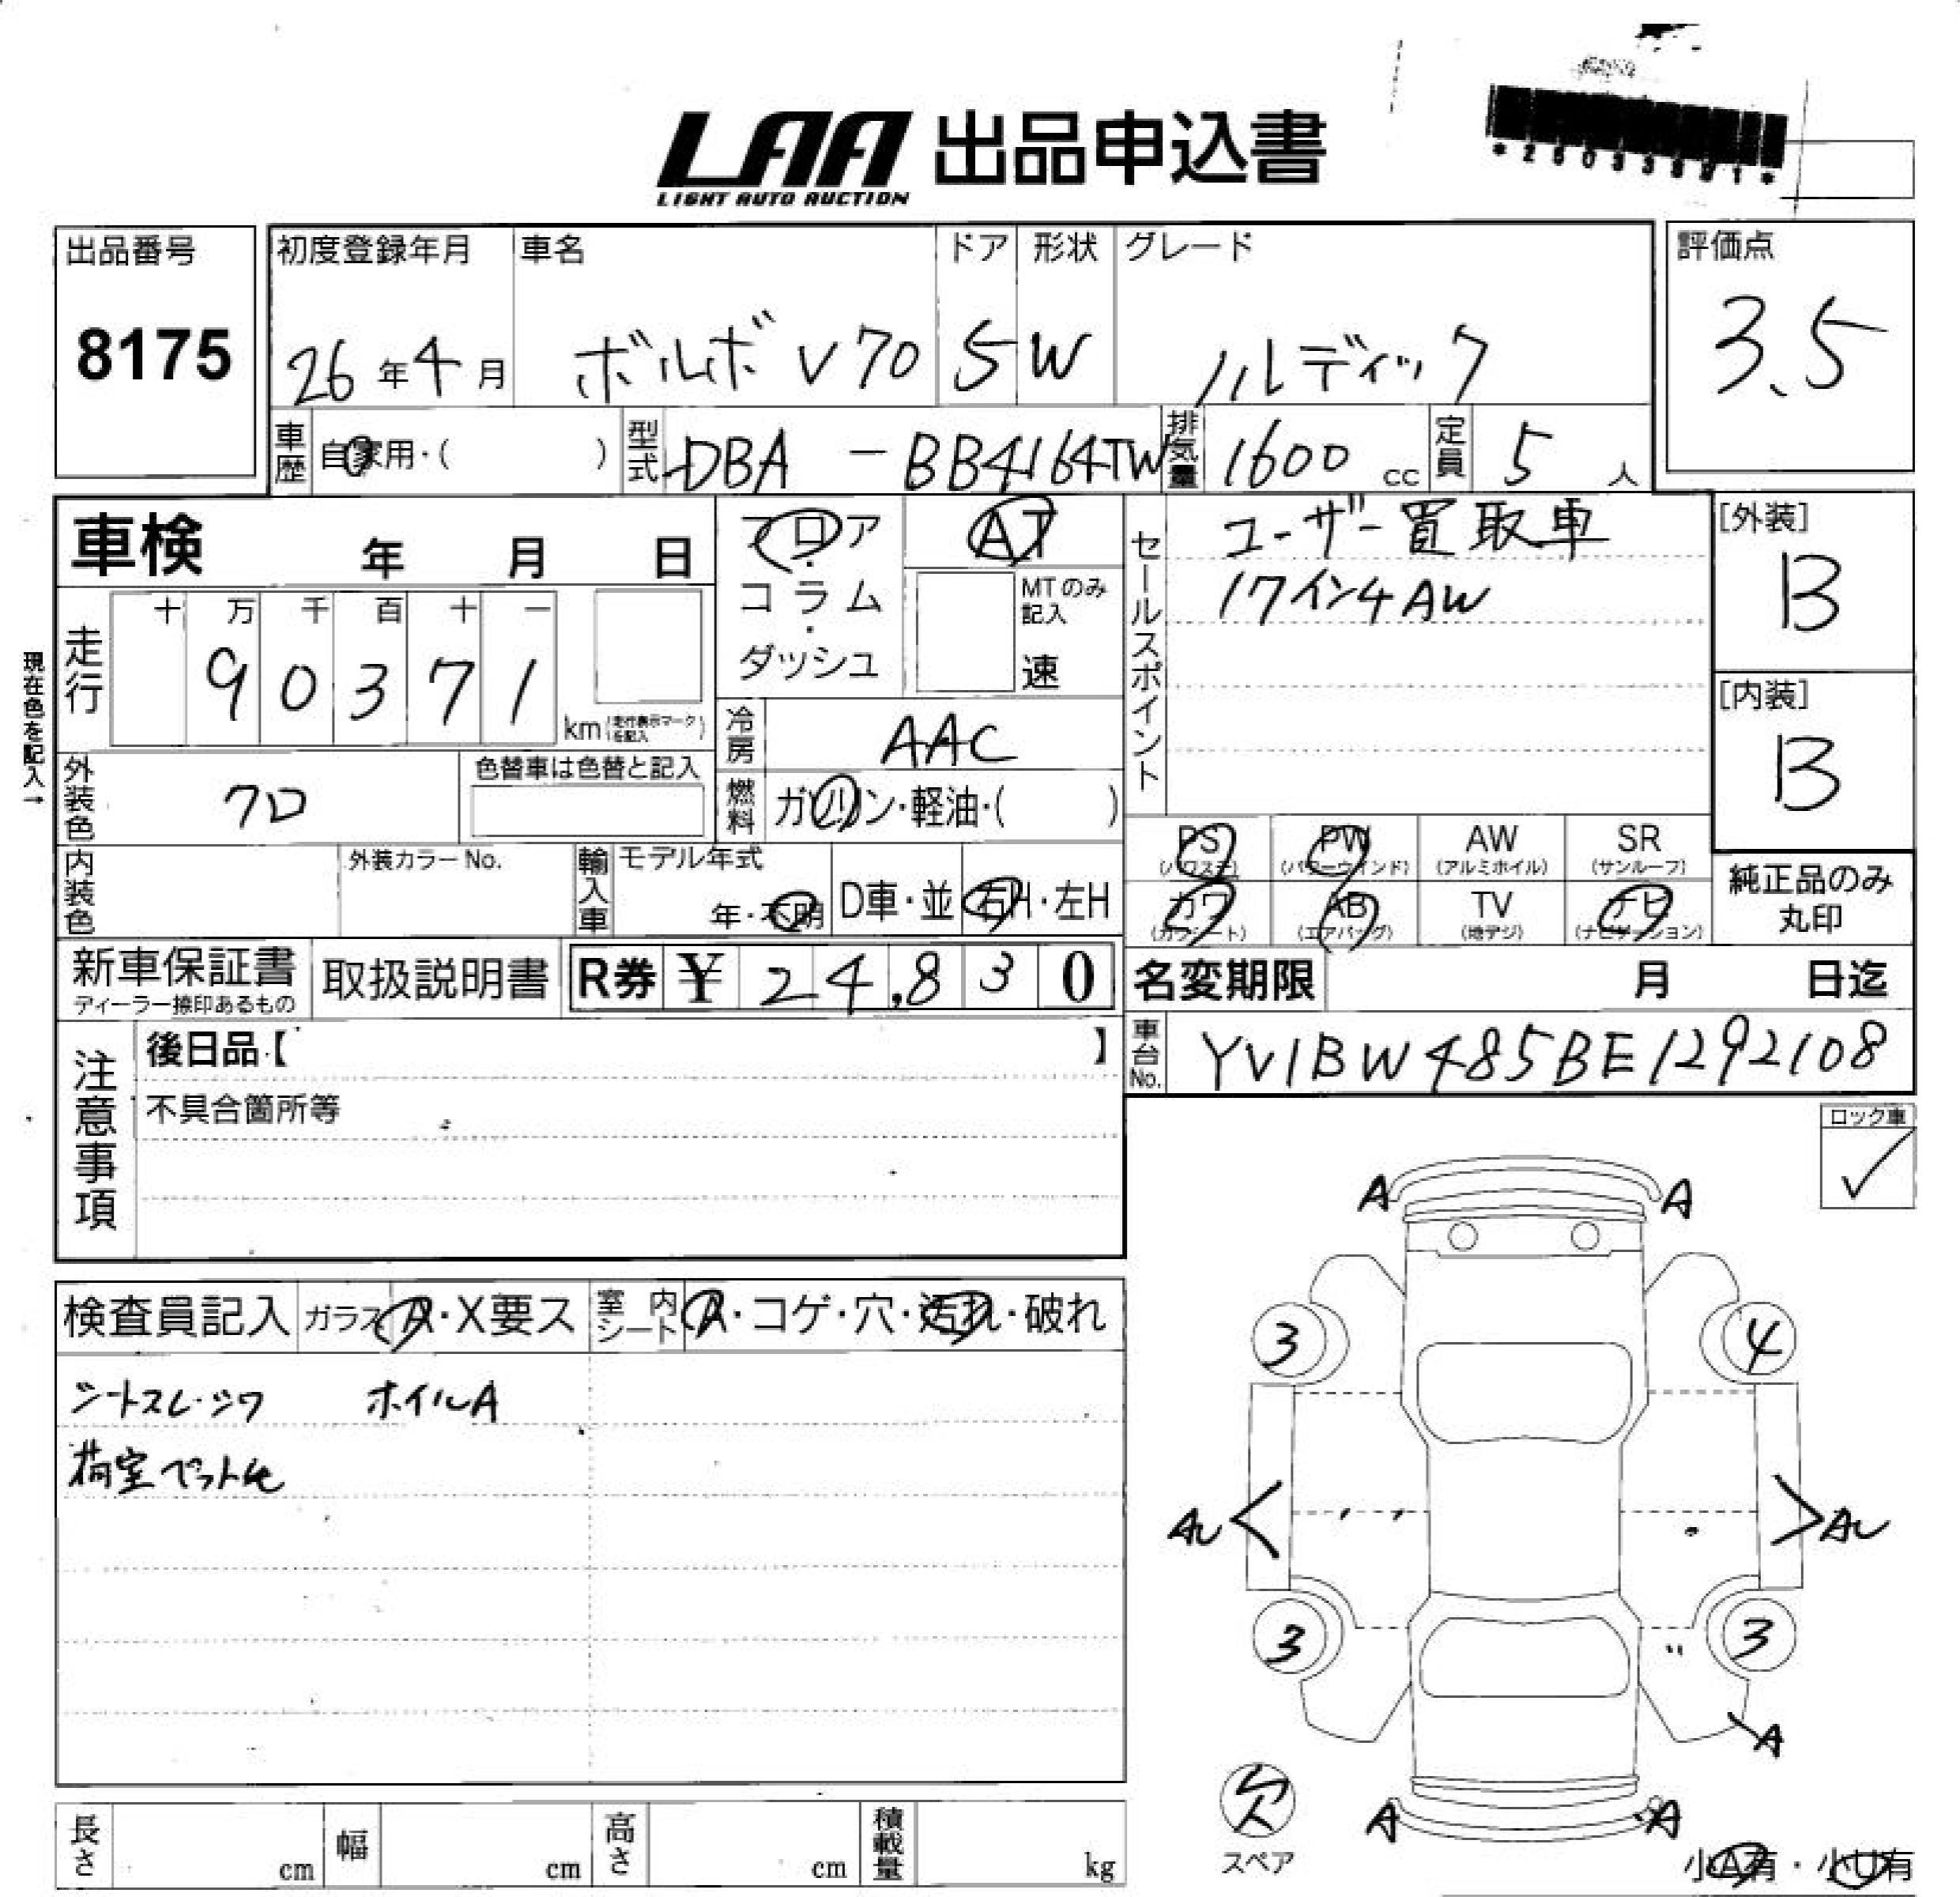 LAA 出品申込書
LIGHT AUTO AUCTION
出品番号
8175
初度登録年月 車名 ドア 形状 グレード
26年4月 ボルボ V70 5 W ノルディック
評価点
3.5
車歴 自家用・( ) 型式 DBA - BB4164TW 排気量 1600 cc 定員 5 人
車検 年 月 日
フロア・コラム・ダッシュ
AT
MTのみ記入
速
セールスポイント
ユーザー買取車
17インチAW
[外装]
B
[内装]
B
現在色を記入→
走行 十 万 千 百 十 一
9 0 3 7 1 km(走行表示マークを記入)
冷房 AAC
外装色 クロ 色替車は色替と記入
燃料 ガソリン・軽油・( )
内装色 外装カラーNo. 輸入車 モデル年式 年・不明 D車・並 右H・左H
PS (パワステ) PW (パワーウインド) AW (アルミホイル) SR (サンルーフ)
カワ (カワシート) AB (エアバッグ) TV (地デジ) ナビ (ナビゲーション)
純正品のみ丸印
新車保証書 ディーラー捺印あるもの 取扱説明書 R券 ¥ 24,830
名変期限 月 日迄
車台No. YV1BW485BE1292108
注意事項
後日品【 】
不具合箇所等
ロック車
✓
検査員記入 ガラス A・X要ス 室内シート A・コゲ・穴・汚れ・破れ
シートスレ・シワ ホイルA
荷室ペット毛
A A
3 4
AU AU
3 3
A
欠
スペア
A A
小A有・小U有
長さ cm 幅 cm 高さ cm 積載量 kg